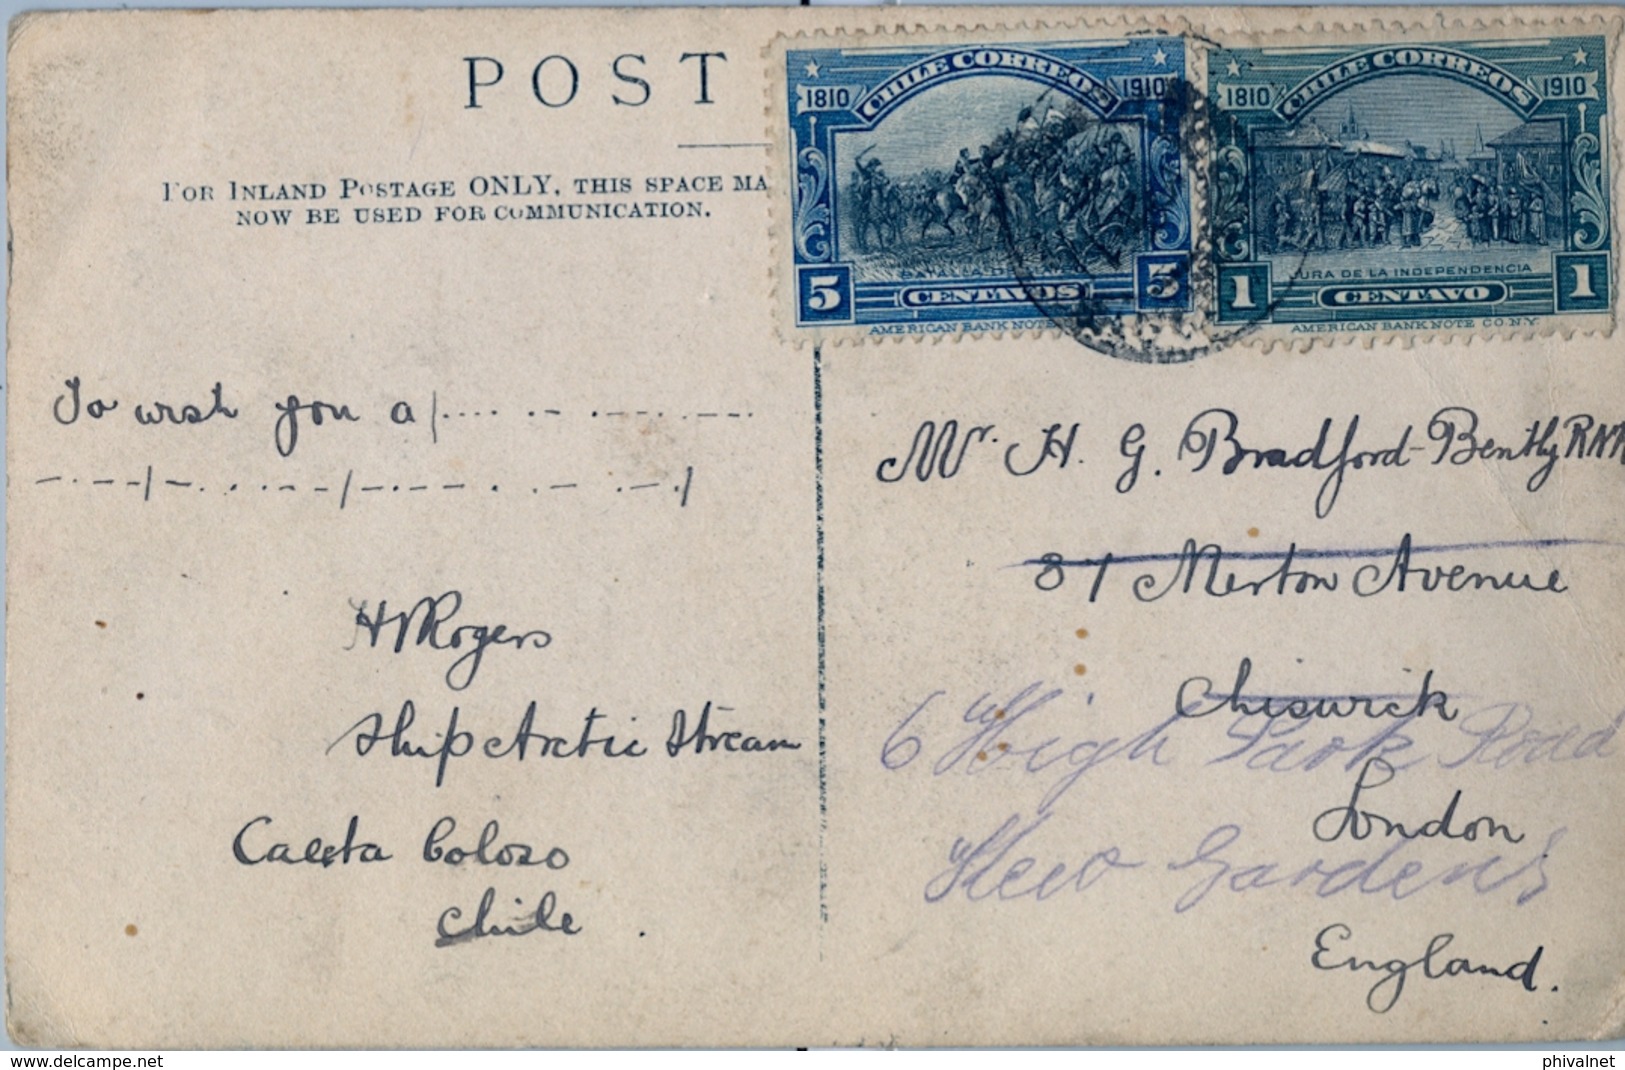 POST
FOR INLAND POSTAGE ONLY, THIS SPACE MA
NOW BE USED FOR COMMUNICATION.
CHILE CORREOS
1810 1910
5 CENTAVOS 5
AMERICAN BANK NOTE
CHILE CORREOS
1810 1910
JURA DE LA INDEPENDENCIA
1 CENTAVO 1
AMERICAN BANK NOTE CO. N.Y.
To wish you a
H Rogers
Ship Arctic Stream
Caleta Coloso
Chile.
Mr. H. G. Bradford-Bently RNR
87 Merton Avenue
Chiswick
6 High Park Road
London.
Kew Gardens
England.
phivalnet
delcampe.net